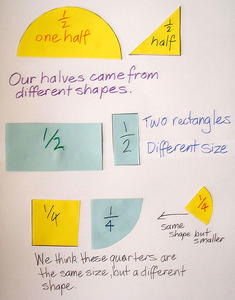 1/2
one half
1/2
half
Our halves came from
different shapes.
1/2
1/2
Two rectangles
Different size
1/4
1/4
1/4
same
shape but
smaller
We think these quarters are
the same size, but a different
shape.